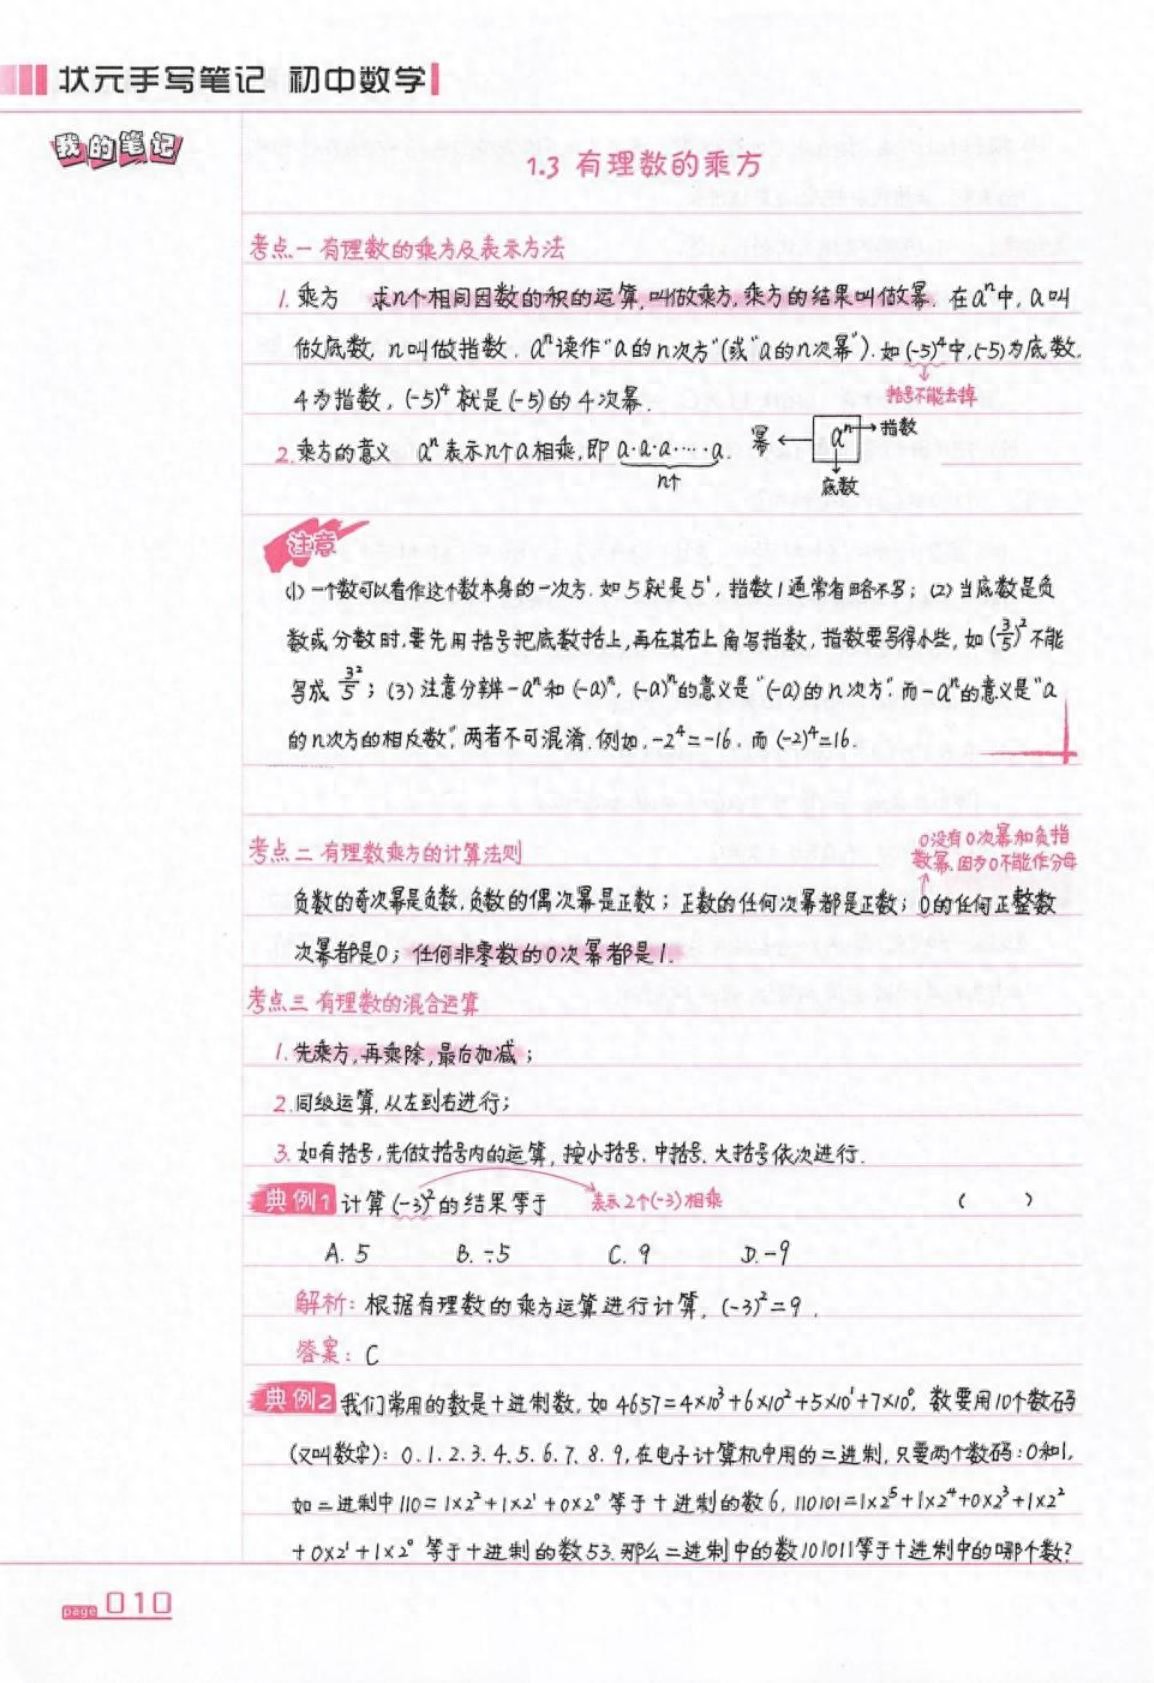 状元手写笔记 初中数学
我的笔记
1.3 有理数的乘方
考点一 有理数的乘方及表示方法
1. 乘方 求n个相同因数的积的运算,叫做乘方,乘方的结果叫做幂. 在aⁿ中, a叫
做底数, n叫做指数. aⁿ读作“a的n次方”(或“a的n次幂”). 如(-5)⁴中,(-5)为底数,
括号不能去掉
4为指数, (-5)⁴就是(-5)的4次幂.
2. 乘方的意义 aⁿ表示n个a相乘,即a·a·a·…·a.
n个
幂 aⁿ 指数
底数
注意
(1)一个数可以看作这个数本身的一次方. 如5就是5¹, 指数1通常省略不写; (2)当底数是负
数或分数时,要先用括号把底数括上,再在其右上角写指数, 指数要写得小些, 如(3/5)²不能
写成3²/5; (3)注意分辨-aⁿ和(-a)ⁿ, (-a)ⁿ的意义是“(-a)的n次方”. 而-aⁿ的意义是“a
的n次方的相反数”, 两者不可混淆. 例如, -2⁴=-16. 而(-2)⁴=16.
考点二 有理数乘方的计算法则
0没有0次幂和负指
数幂. 因为0不能作分母
负数的奇次幂是负数, 负数的偶次幂是正数; 正数的任何次幂都是正数; 0的任何正整数
次幂都是0; 任何非零数的0次幂都是1.
考点三 有理数的混合运算
1. 先乘方, 再乘除, 最后加减;
2. 同级运算, 从左到右进行;
3. 如有括号, 先做括号内的运算, 按小括号. 中括号. 大括号依次进行.
典例1 计算(-3)²的结果等于 表示2个(-3)相乘 ( )
A. 5 B. -5 C. 9 D. -9
解析: 根据有理数的乘方运算进行计算, (-3)²=9.
答案: C
典例2 我们常用的数是十进制数, 如4657=4×10³+6×10²+5×10¹+7×10⁰, 数要用10个数码
(又叫数字): 0. 1. 2. 3. 4. 5. 6. 7. 8. 9, 在电子计算机中用的二进制, 只要两个数码: 0和1,
如二进制中110=1×2²+1×2¹+0×2⁰等于十进制的数6, 110101=1×2⁵+1×2⁴+0×2³+1×2²
+0×2¹+1×2⁰等于十进制的数53. 那么二进制中的数101011等于十进制中的哪个数?
page 010